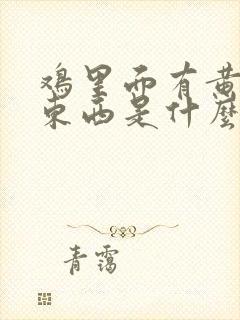 鸡里面有黄
东西是什麼
青霭